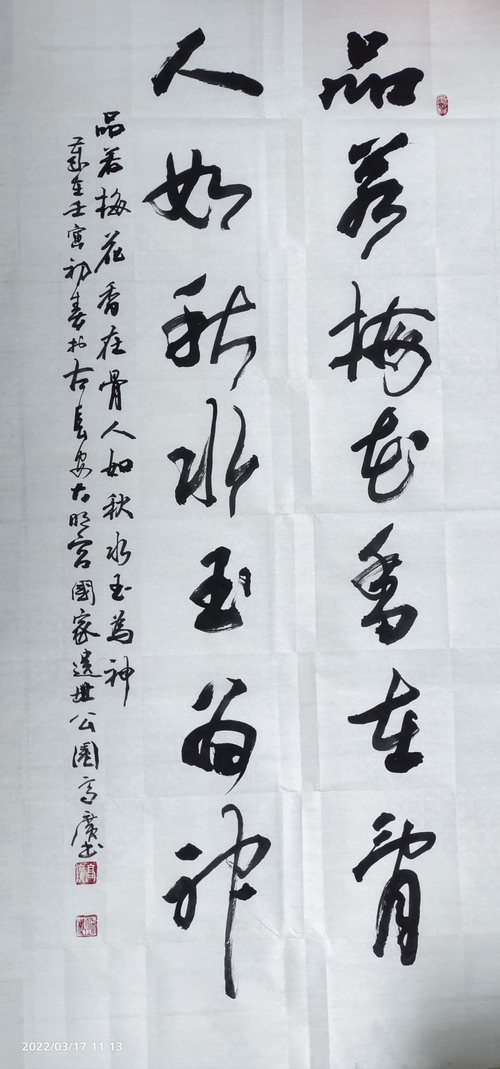 品若梅花香在骨
人如秋水玉为神
品若梅花香在骨人如秋水玉為神
岁在壬寅初春於古長安大明宫國家遺址公園高廣书
2022/03/17 11:13